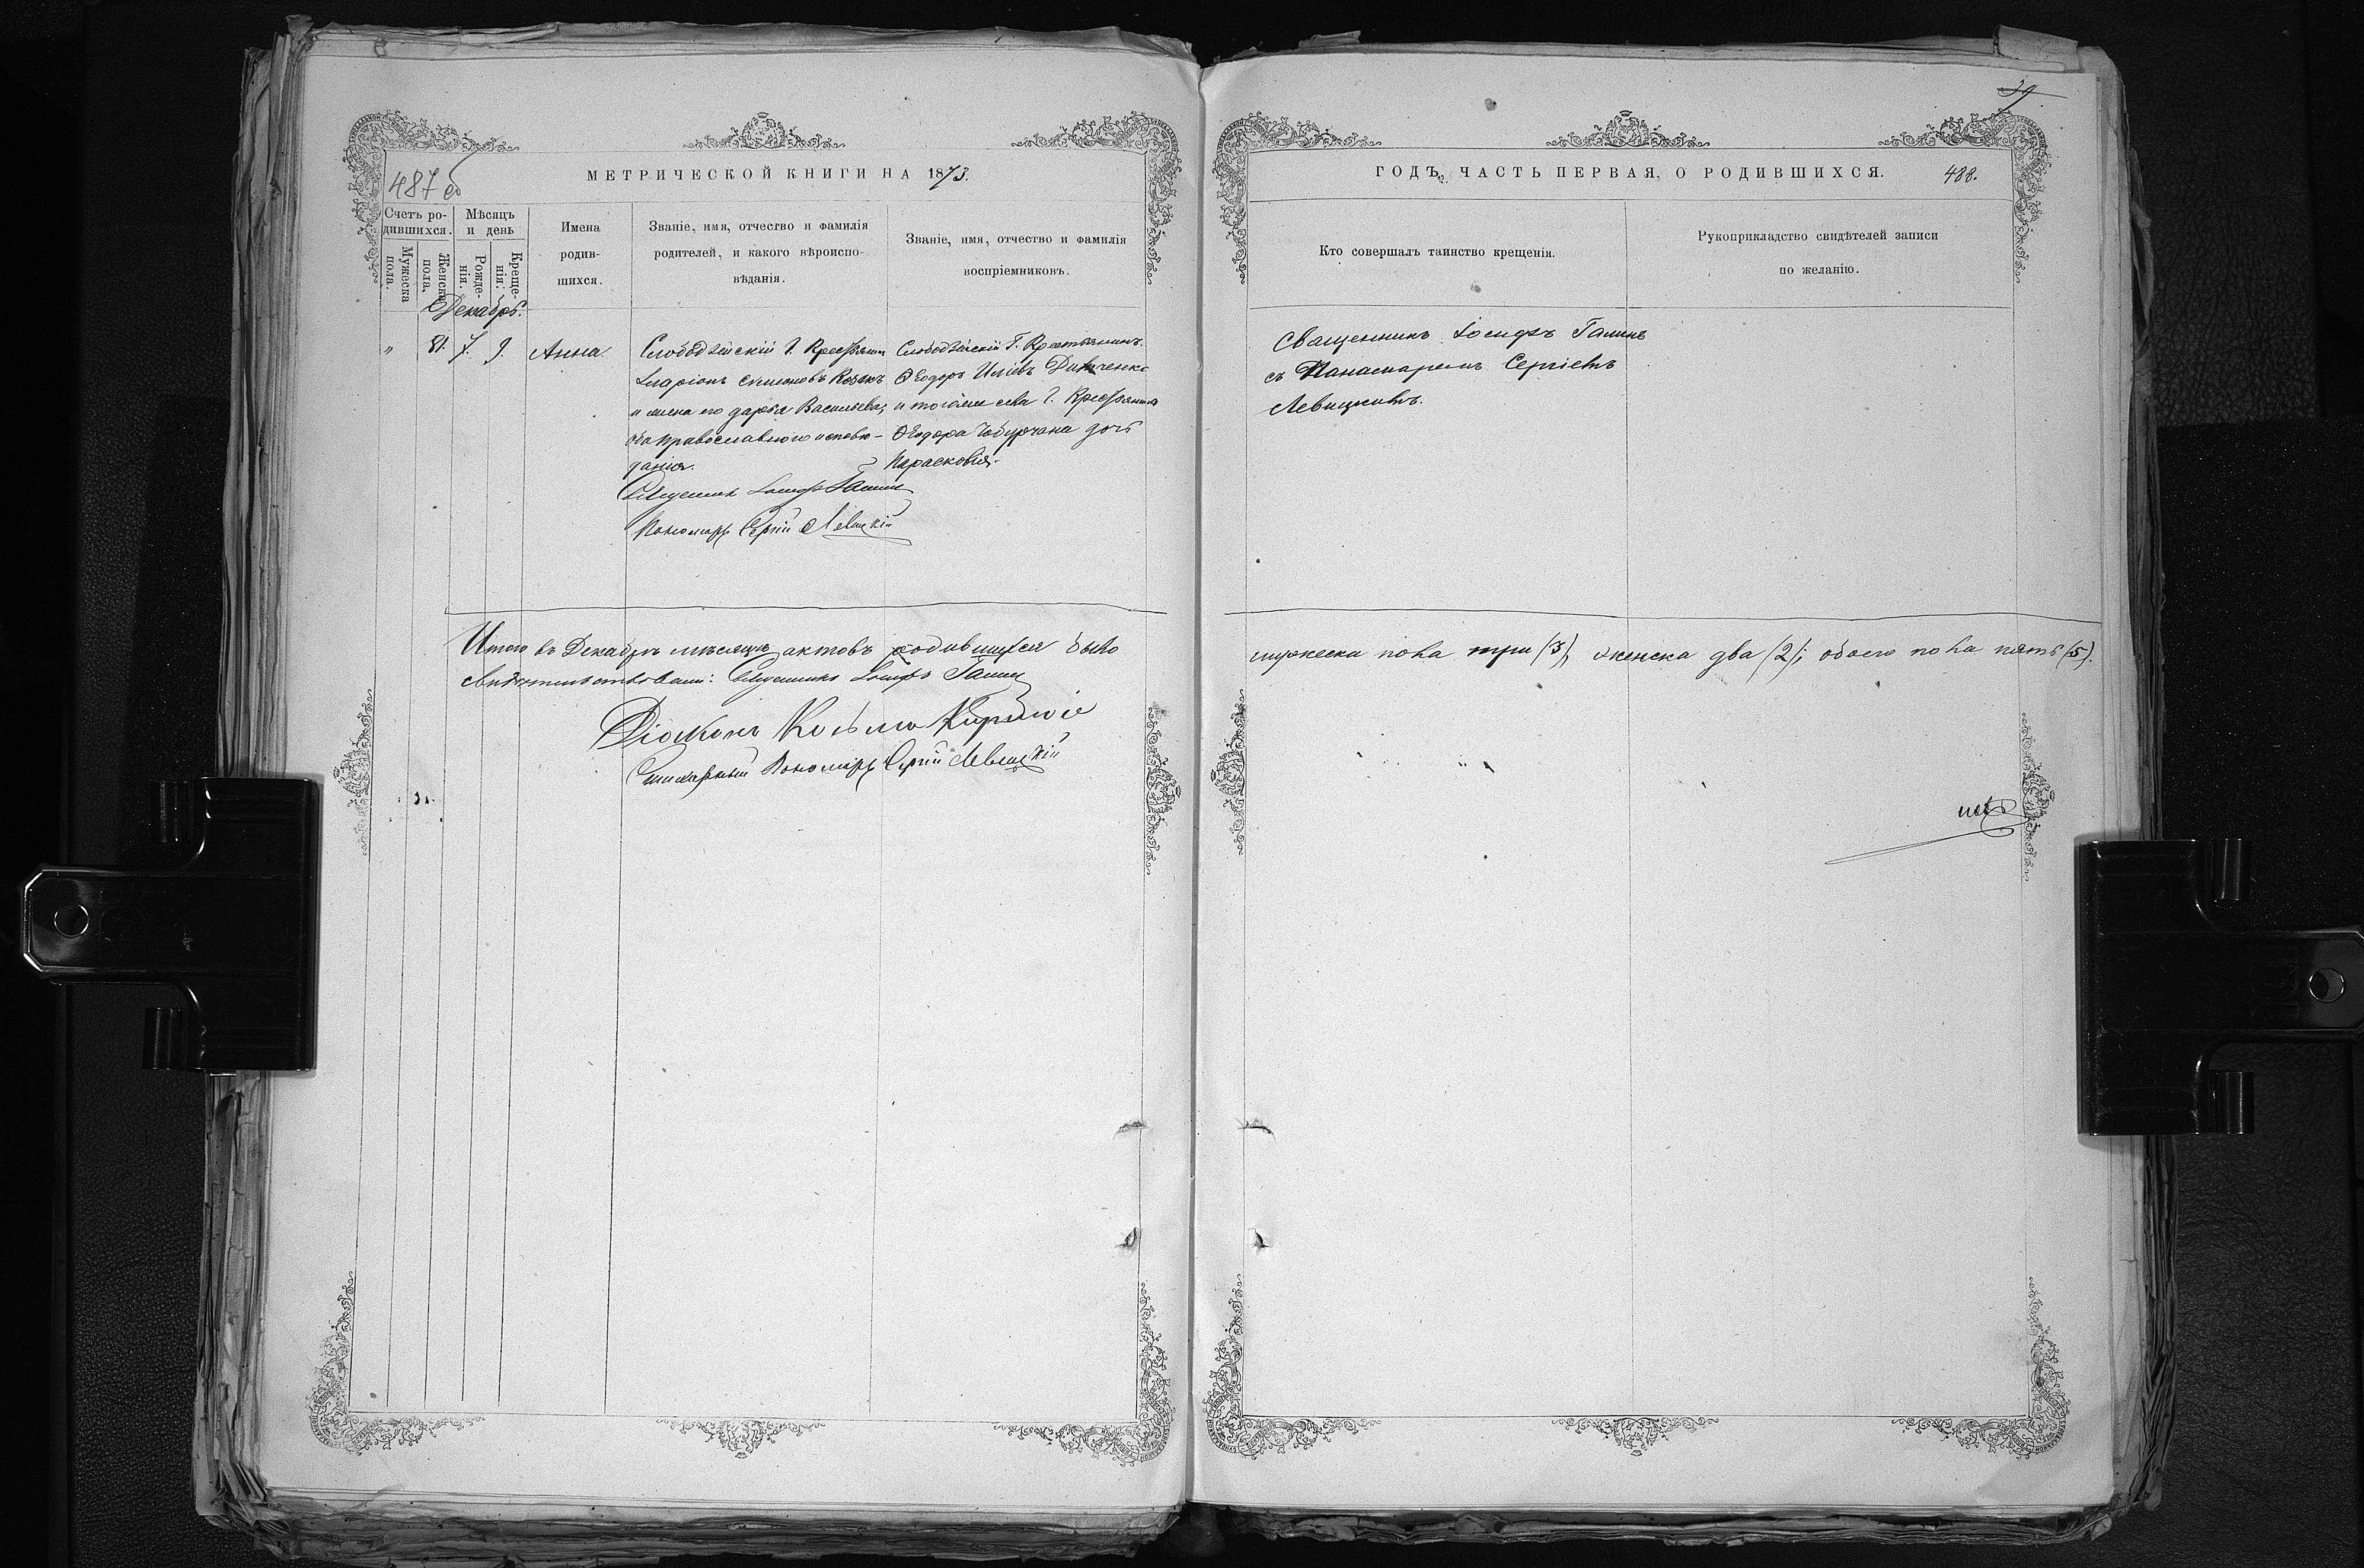 39
МЕТРИЧЕСКОЙ КНИГИ НА 1873.
487 об
Счетъ ро-
дившихся.
Мужеска
пола.
Женска
пола.
Мѣсяцъ
и день
Рожде-
нія.
Креще-
нія.
Имена
родив-
шихся.
Званіе, имя, отчество и фамилія
родителей, и какого вѣроиспо-
вѣданія.
Званіе, имя, отчество и фамилія
воспріемниковъ.
Декабрь.
„ 31. 7. 9. Анна.
Слободзейскій Г. Крестьянин
Иларіонъ Симеоновъ Козакъ
и жена его Дарья Васильева,
оба православнаго исповѣ-
данія.
Священникъ Іосифъ Галинъ
Пономарь Сергій Левицкій
Слободзейскій Г. Крестьянинъ
Ѳеодоръ Иліевъ
и того же села Г. Крестьянина
Ѳеодора Чобурчана дочь
Парасковія.
Итого въ Декабрѣ мѣсяцѣ актовъ родившихся было
свидѣтельствовали: Священникъ Іосифъ Галинъ
Діаконъ Косьма
Пономарь Сергій Левицкій
ГОДЪ, ЧАСТЬ ПЕРВАЯ, О РОДИВШИХСЯ.
488.
Кто совершалъ таинство крещенія.
Рукоприкладство свидѣтелей записи
по желанію.
Священникъ Іосифъ Галинъ
съ Панамаремъ Сергіемъ
Левицкимъ.
мужеска пола три (3), женска два (2); обоего пола пять (5).